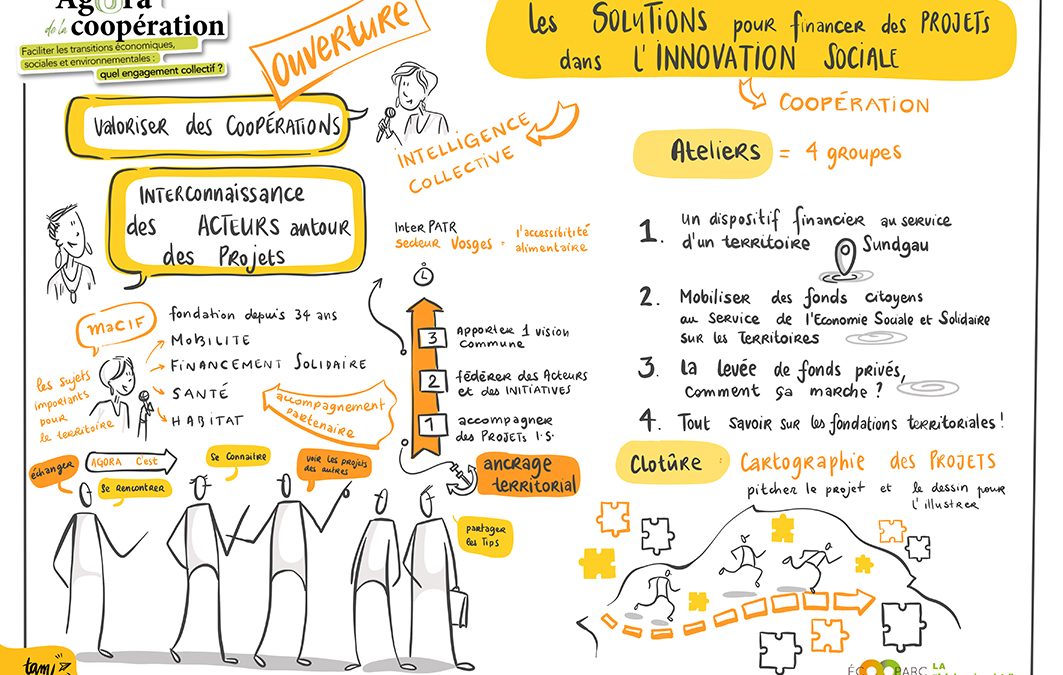 Agora
de la coopération
Faciliter les transitions économiques,
sociales et environnementales :
quel engagement collectif ?
OUVERTURE
Les SOLUTIONS pour financer des PROJETS
dans l'INNOVATION SOCIALE
COOPÉRATION
INTELLIGENCE
COLLECTIVE
Valoriser des COOPÉRATIONS
INTERconnaissance
des ACTEURS autour
des Projets
Inter PATR
secteur Vosges = l'accessibitité
alimentaire
MACIF
fondation depuis 34 ans
MOBILITE
FINANCEMENT SOLIDAIRE
SANTÉ
HABITAT
les sujets
importants
pour
le territoire
accompagnement
partenaire
3 Apporter 1 vision
commune
2 fédérer des Acteurs
et des INITIATIVES
1 accompagner
des PROJETS I.S.
ancrage
territorial
échanger
AGORA C'est
se rencontrer
se Connaitre
voir les projets
des autres
partager
les Tips
Ateliers = 4 groupes
1. un dispositif financier au service
d'un territoire Sundgau
2. Mobiliser des fonds citoyens
au service de l'Economie Sociale et Solidaire
sur les Territoires
3. la levée de fonds privés,
comment ça marche ?
4. Tout savoir sur les fondations territoriales !
Clotûre : Cartographie des PROJETS
pitcher le projet et le dessin pour
l'illustrer
tam
LA